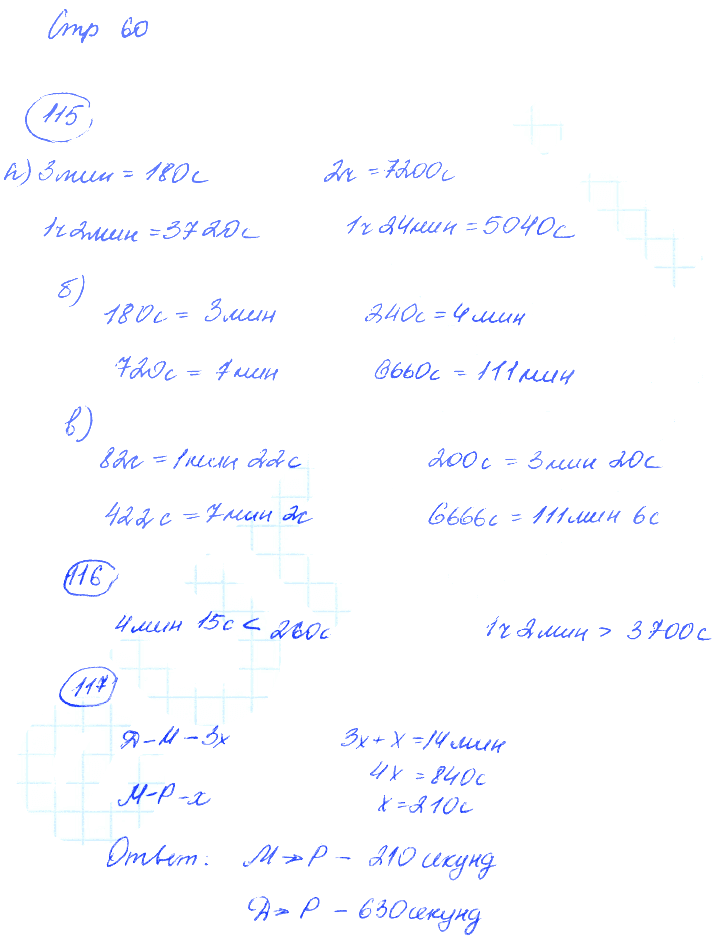 Стр 60
115
а) 3мин = 180с 2ч = 7200с
1ч 2мин = 3720с 1ч 24мин = 5040с
б)
180с = 3мин 240с = 4мин
720с = 1мин 6660с = 111мин
в)
82с = 1мин 22с 200с = 3мин 20с
422с = 7мин 2с 6666с = 111мин 6с
116
4мин 15с < 260с 1ч 2мин > 3700с
117
Д-М-3х 3х+х=14мин
4х = 840с
М-Р-х х=210с
Ответ: М→Р - 210секунд
Д→Р - 630секунд